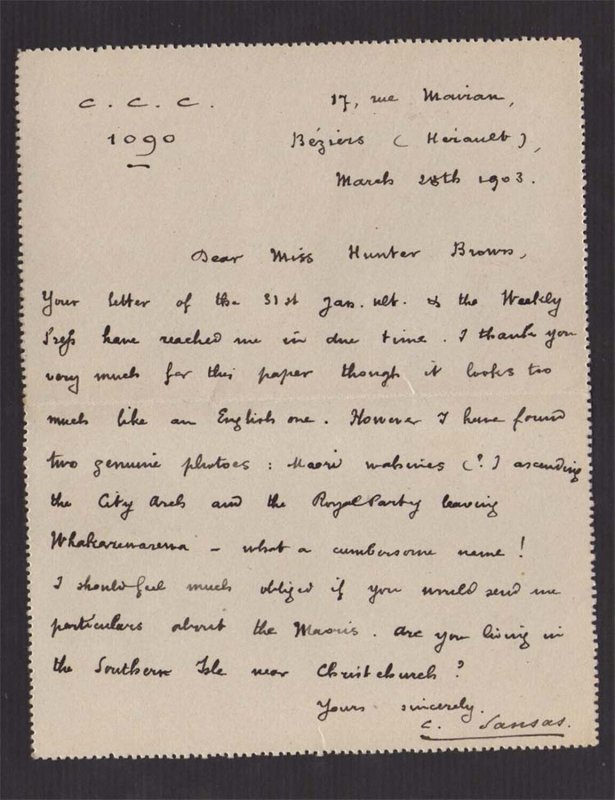 C. C. C.
1090
17, rue Mavian,
Béziers (Hérault),
March 28th 1903.
Dear Miss Hunter Brown,
Your letter of the 31st Jan. ult. & the Weekly
Press have reached me in due time. I thank you
very much for this paper though it looks too
much like an English one. However I have found
two genuine photoes: Maori wahines (?) ascending
the City Arch and the Royal Party leaving
Whakarewarewa - what a cumbersome name!
I should feel much obliged if you would send me
particulars about the Maoris. Are you living in
the Southern Isle near Christchurch?
Yours sincerely.
C. Sansas.